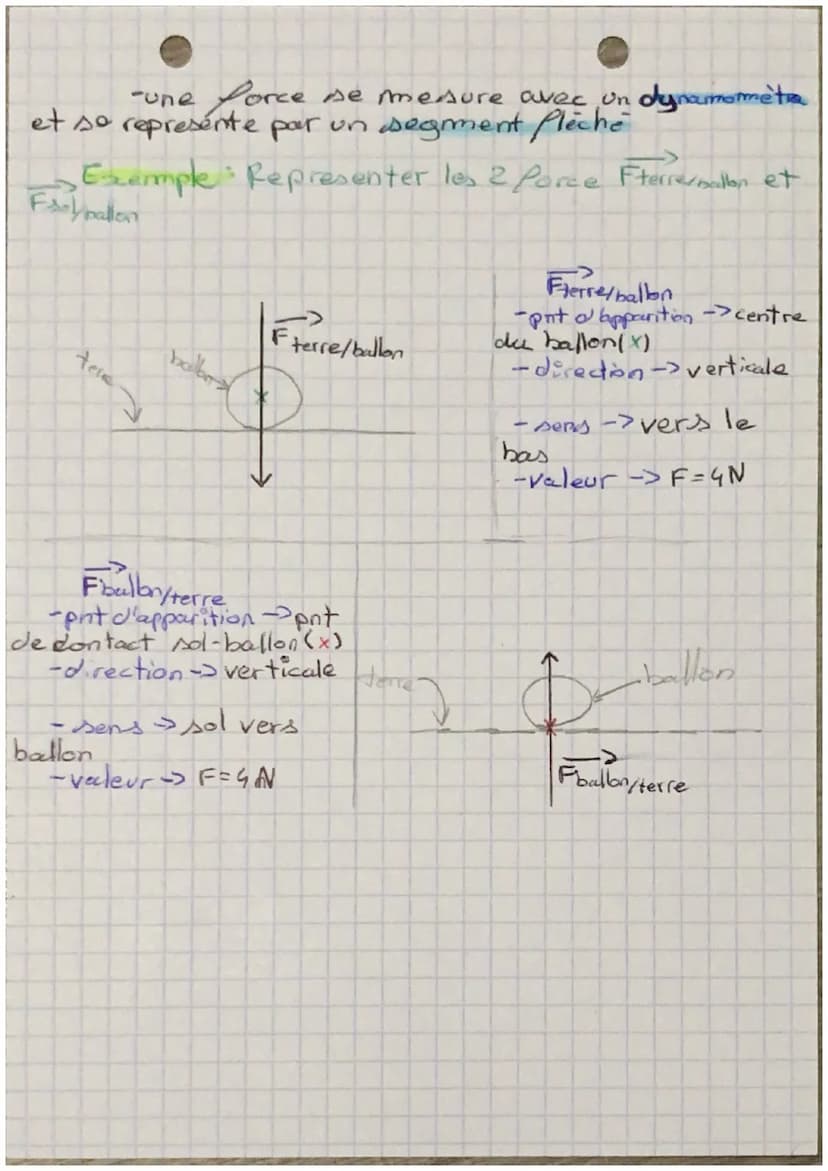 -une force se mesure avec un dynamomètre
et se représente par un segment fléché
Exemple : Representer les 2 force Fterre/ballon et
Fsol/ballon
Fterre/ballon
-pnt d'apparition -> centre
du ballon(x)
-direction -> verticale
-sens -> vers le
bas
-valeur -> F=4N
F terre/ballon
terre
ballon
Fballon/terre
-pnt d'apparition -> pnt
de contact sol-ballon(x)
-direction -> verticale
-sens -> sol vers
ballon
-valeur -> F=4N
terre
ballon
Fballon/terre